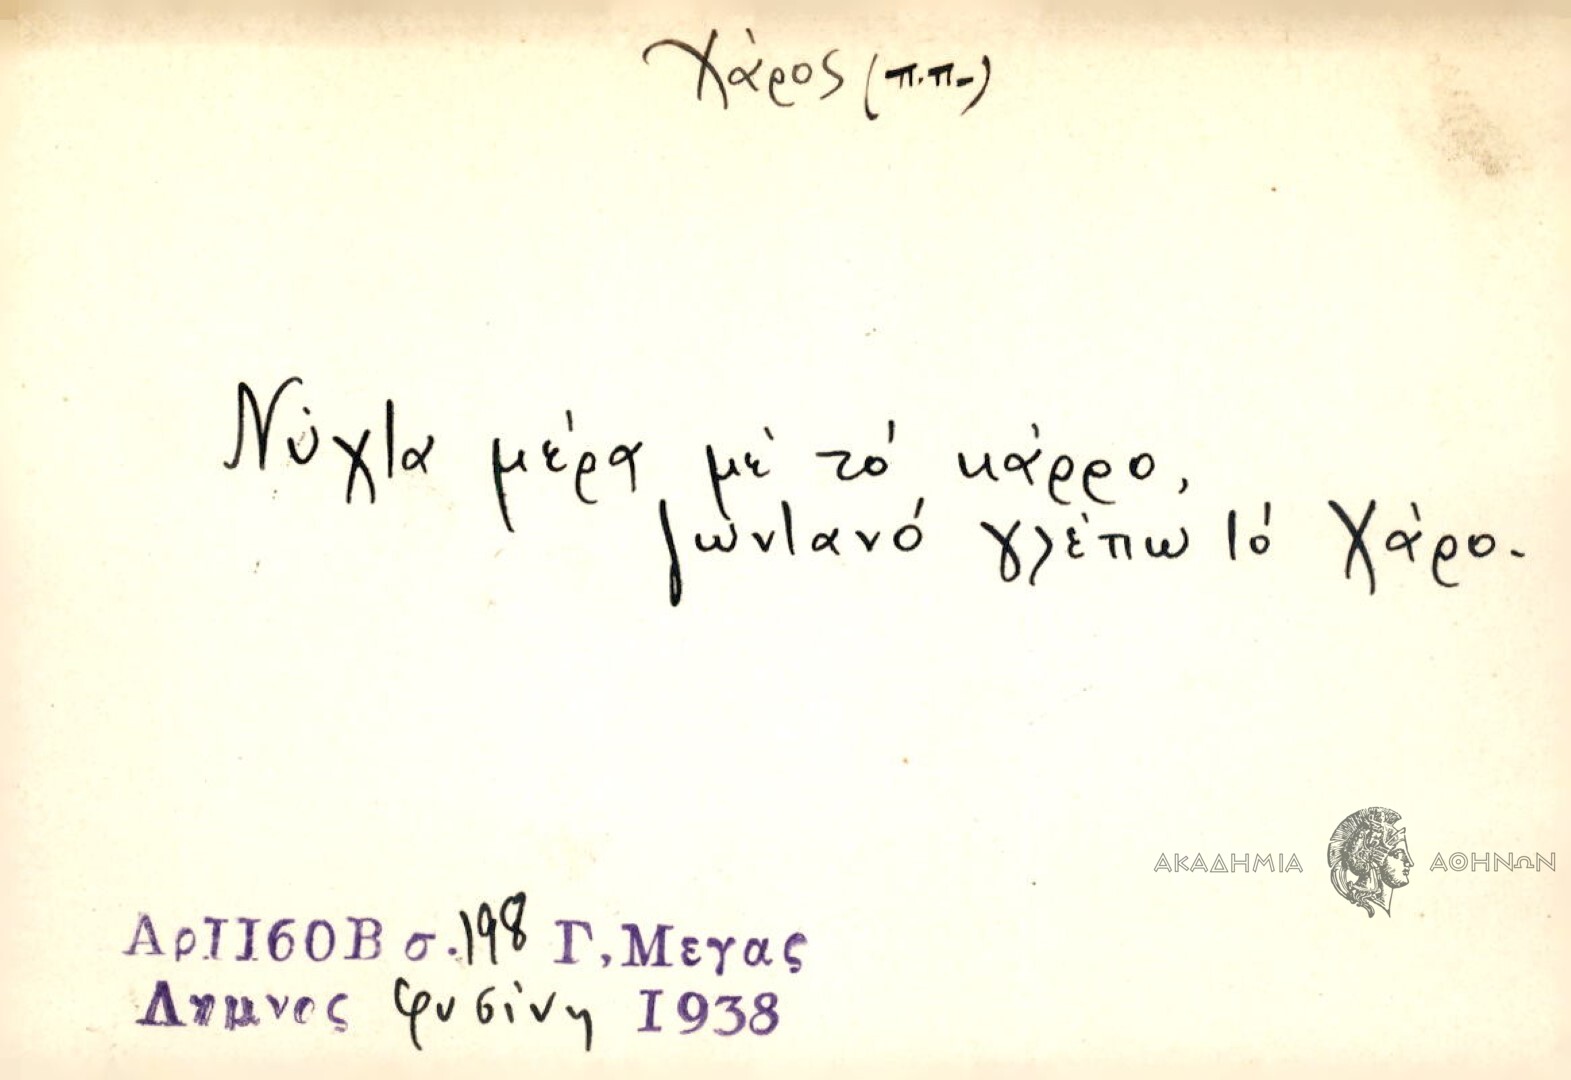 Χάρος (π.π-)
Νύχτα μέρα μὲ τό κάρρο,
ζωντανό γλέπω τό Χάρο.
ΑΚΑΔΗΜΙΑ ΑΘΗΝΩΝ
Αρ.1160Β σ.198 Γ.Μεγας
Λημνος Φυσίνη 1938